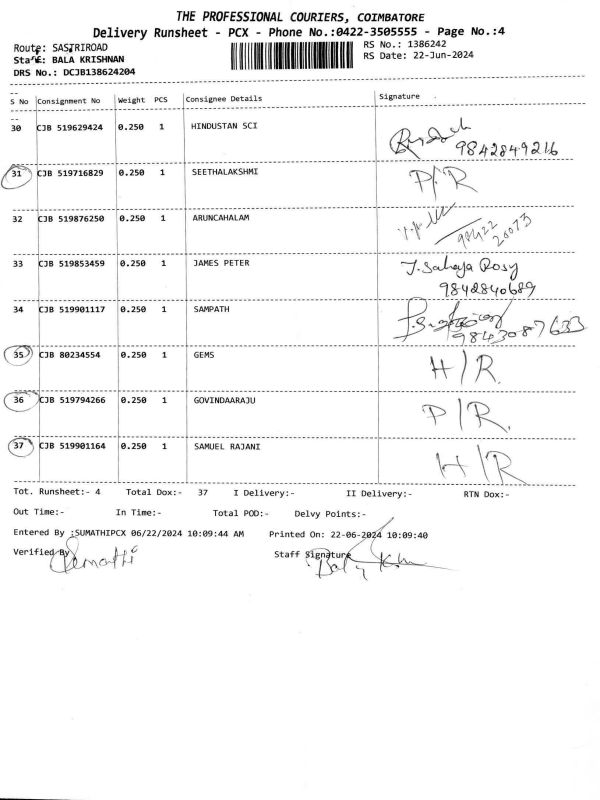 THE PROFESSIONAL COURIERS, COIMBATORE
Delivery Runsheet - PCX - Phone No.:0422-3505555 - Page No.:4
Route: SASTRIROAD
RS No.: 1386242
Staff: BALA KRISHNAN
RS Date: 22-Jun-2024
DRS No.: DCJB138624204
S No Consignment No Weight PCS Consignee Details Signature
30 CJB 519629424 0.250 1 HINDUSTAN SCI
9842849216
31 CJB 519716829 0.250 1 SEETHALAKSHMI P/R
32 CJB 519876250 0.250 1 ARUNCAHALAM
98422
20073
33 CJB 519853459 0.250 1 JAMES PETER J. Sahaja Rosy
9842840689
34 CJB 519901117 0.250 1 SAMPATH
9843087633
35 CJB 80234554 0.250 1 GEMS H/R.
36 CJB 519794266 0.250 1 GOVINDAARAJU P/R.
37 CJB 519901164 0.250 1 SAMUEL RAJANI H/R
Tot. Runsheet:- 4 Total Dox:- 37 I Delivery:- II Delivery:- RTN Dox:-
Out Time:- In Time:- Total POD:- Delvy Points:-
Entered By :SUMATHIPCX 06/22/2024 10:09:44 AM Printed On: 22-06-2024 10:09:40
Verified By Sumathi Staff Signature